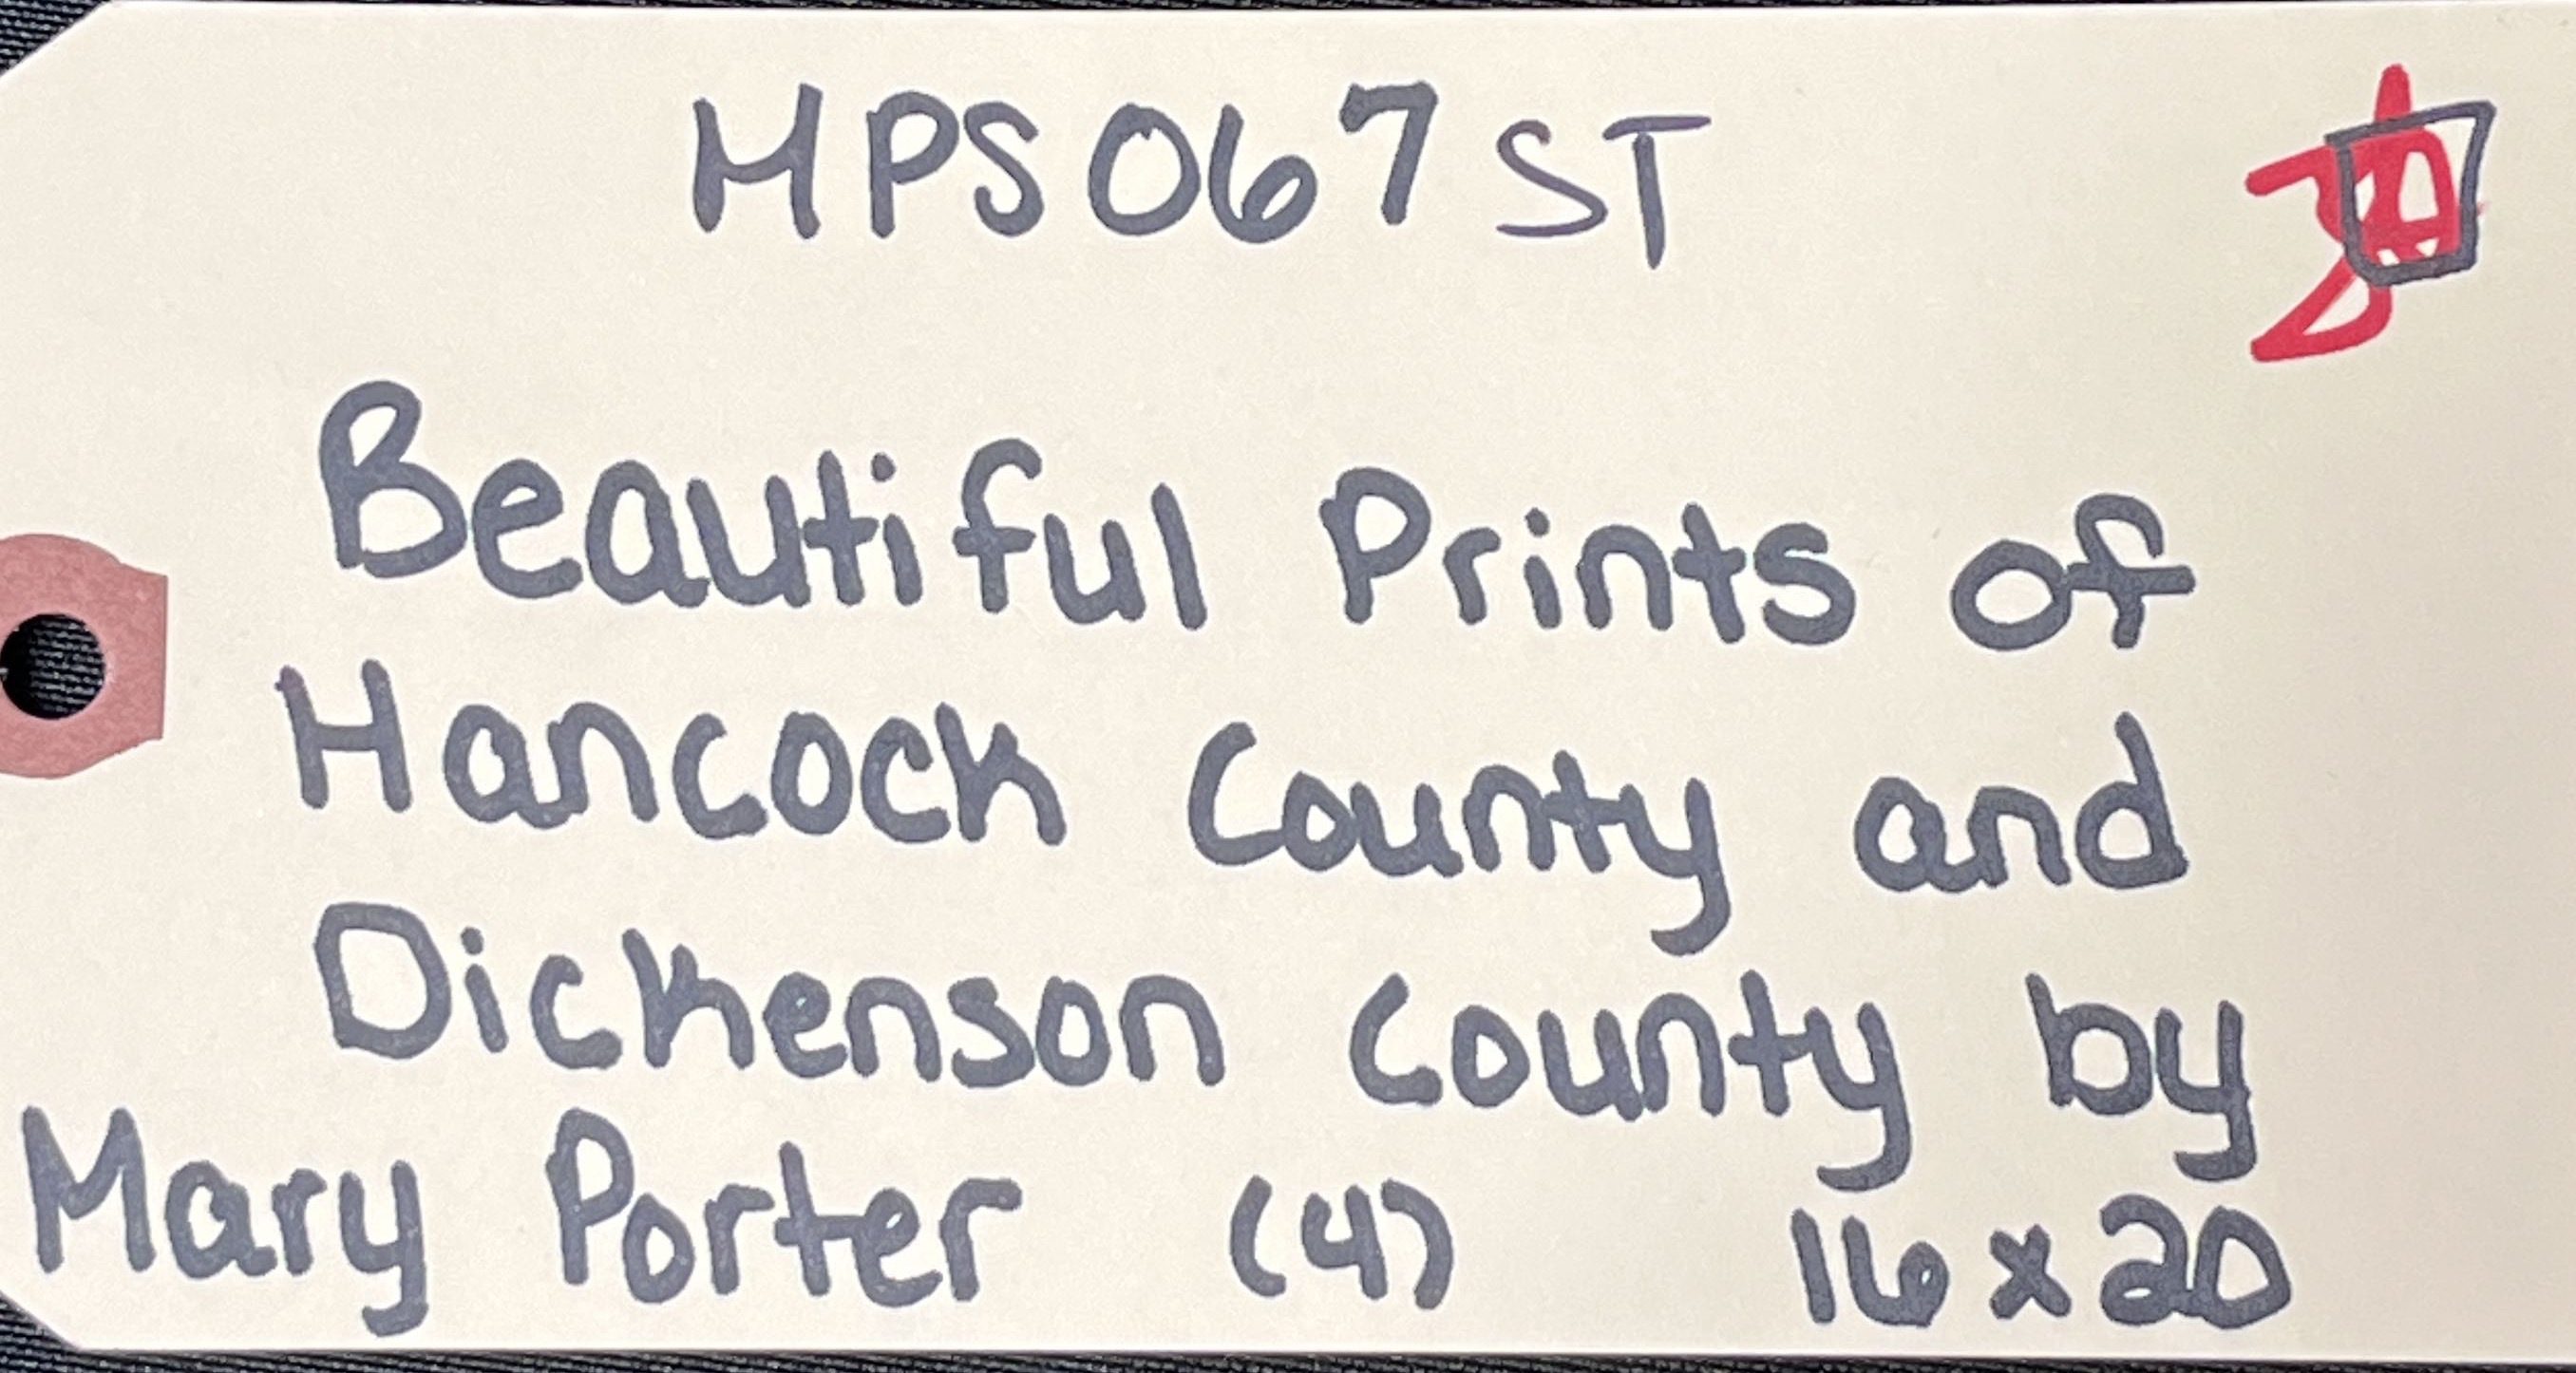 MPS067 ST
Beautiful Prints of
Hancock County and
Dickenson County by
Mary Porter (4) 16x20